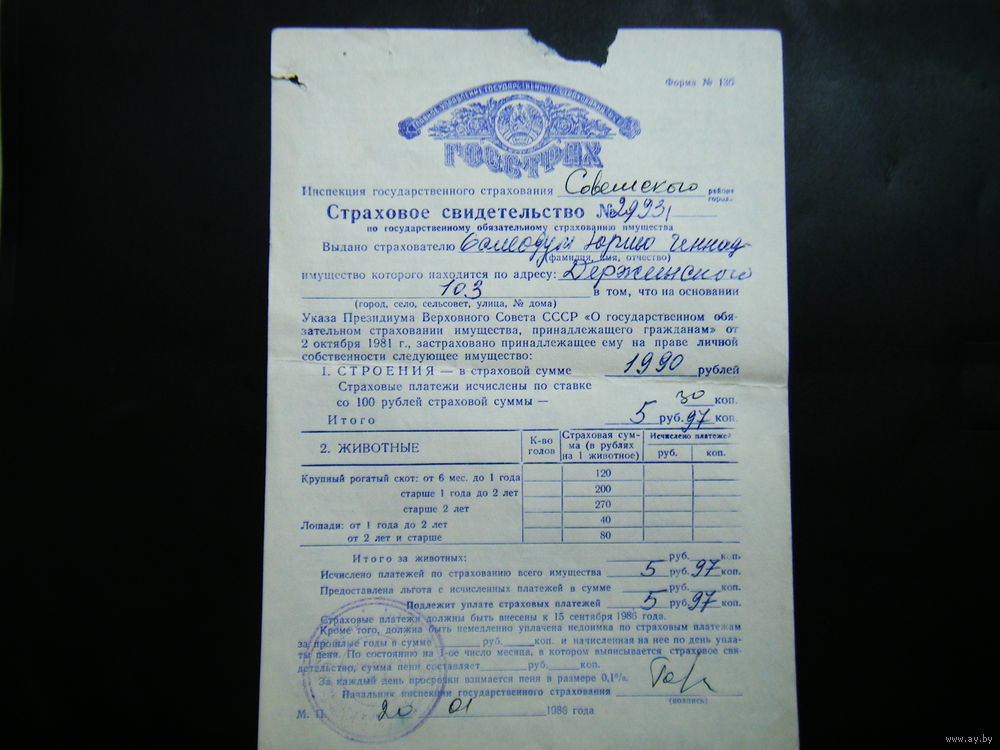 Форма № 136
ГОССТРАХ
Инспекция государственного страхования Советского района
города
Страховое свидетельство № 29931
по государственному обязательному страхованию имущества
Выдано страхователю Юрию Геннад
(фамилия, имя, отчество)
имущество которого находится по адресу: Держинского
103 в том, что на основании
(город, село, сельсовет, улица, № дома)
Указа Президиума Верховного Совета СССР «О государственном обя-
зательном страховании имущества, принадлежащего гражданам» от
2 октября 1981 г., застраховано принадлежащее ему на праве личной
собственности следующее имущество:
1. СТРОЕНИЯ — в страховой сумме 1990 рублей
Страховые платежи исчислены по ставке
со 100 рублей страховой суммы — 30 коп.
Итого 5 руб. 97 коп.
2. ЖИВОТНЫЕ К-во голов Страховая сум-ма (в рублях на 1 животное) Исчислено платежей
руб. коп.
Крупный рогатый скот: от 6 мес. до 1 года 120
старше 1 года до 2 лет 200
старше 2 лет 270
Лошади: от 1 года до 2 лет 40
от 2 лет и старше 80
Итого за животных: руб. коп.
Исчислено платежей по страхованию всего имущества 5 руб. 97 коп.
Предоставлена льгота с исчисленных платежей в сумме руб. коп.
Подлежит уплате страховых платежей 5 руб. 97 коп.
Страховые платежи должны быть внесены к 15 сентября 1986 года.
Кроме того, должна быть немедленно уплачена недоимка по страховым платежам
за прошлые годы в сумме руб. коп. и начисленная на нее по день упла-
ты пеня. По состоянию на 1-ое число месяца, в котором выписывается страховое сви-
детельство, сумма пени составляет руб. коп.
За каждый день просрочки взимается пеня в размере 0,1%.
Начальник инспекции государственного страхования
(подпись)
М. П. 20 01 1986 года
www.ay.by